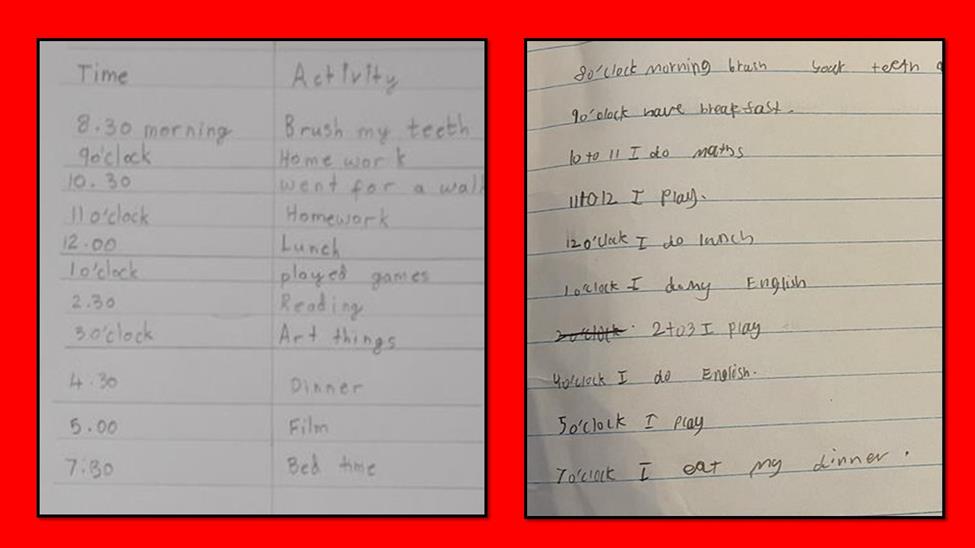 Time Activity
8.30 morning Brush my teeth
9o'clock Home work
10.30 went for a walk
11o'clock Homework
12.00 Lunch
1o'clock played games
2.30 Reading
3o'clock Art things
4.30 Dinner
5.00 Film
7:30 Bed time
8o'clock morning brush your teeth
9o'clock have breakfast.
10 to 11 I do maths
11to12 I play.
12o'clock I do lunch
1o'clock I do my English
2o'clock. 2to3 I play
4o'clock I do English.
5o'clock I play
7o'clock I eat my dinner.